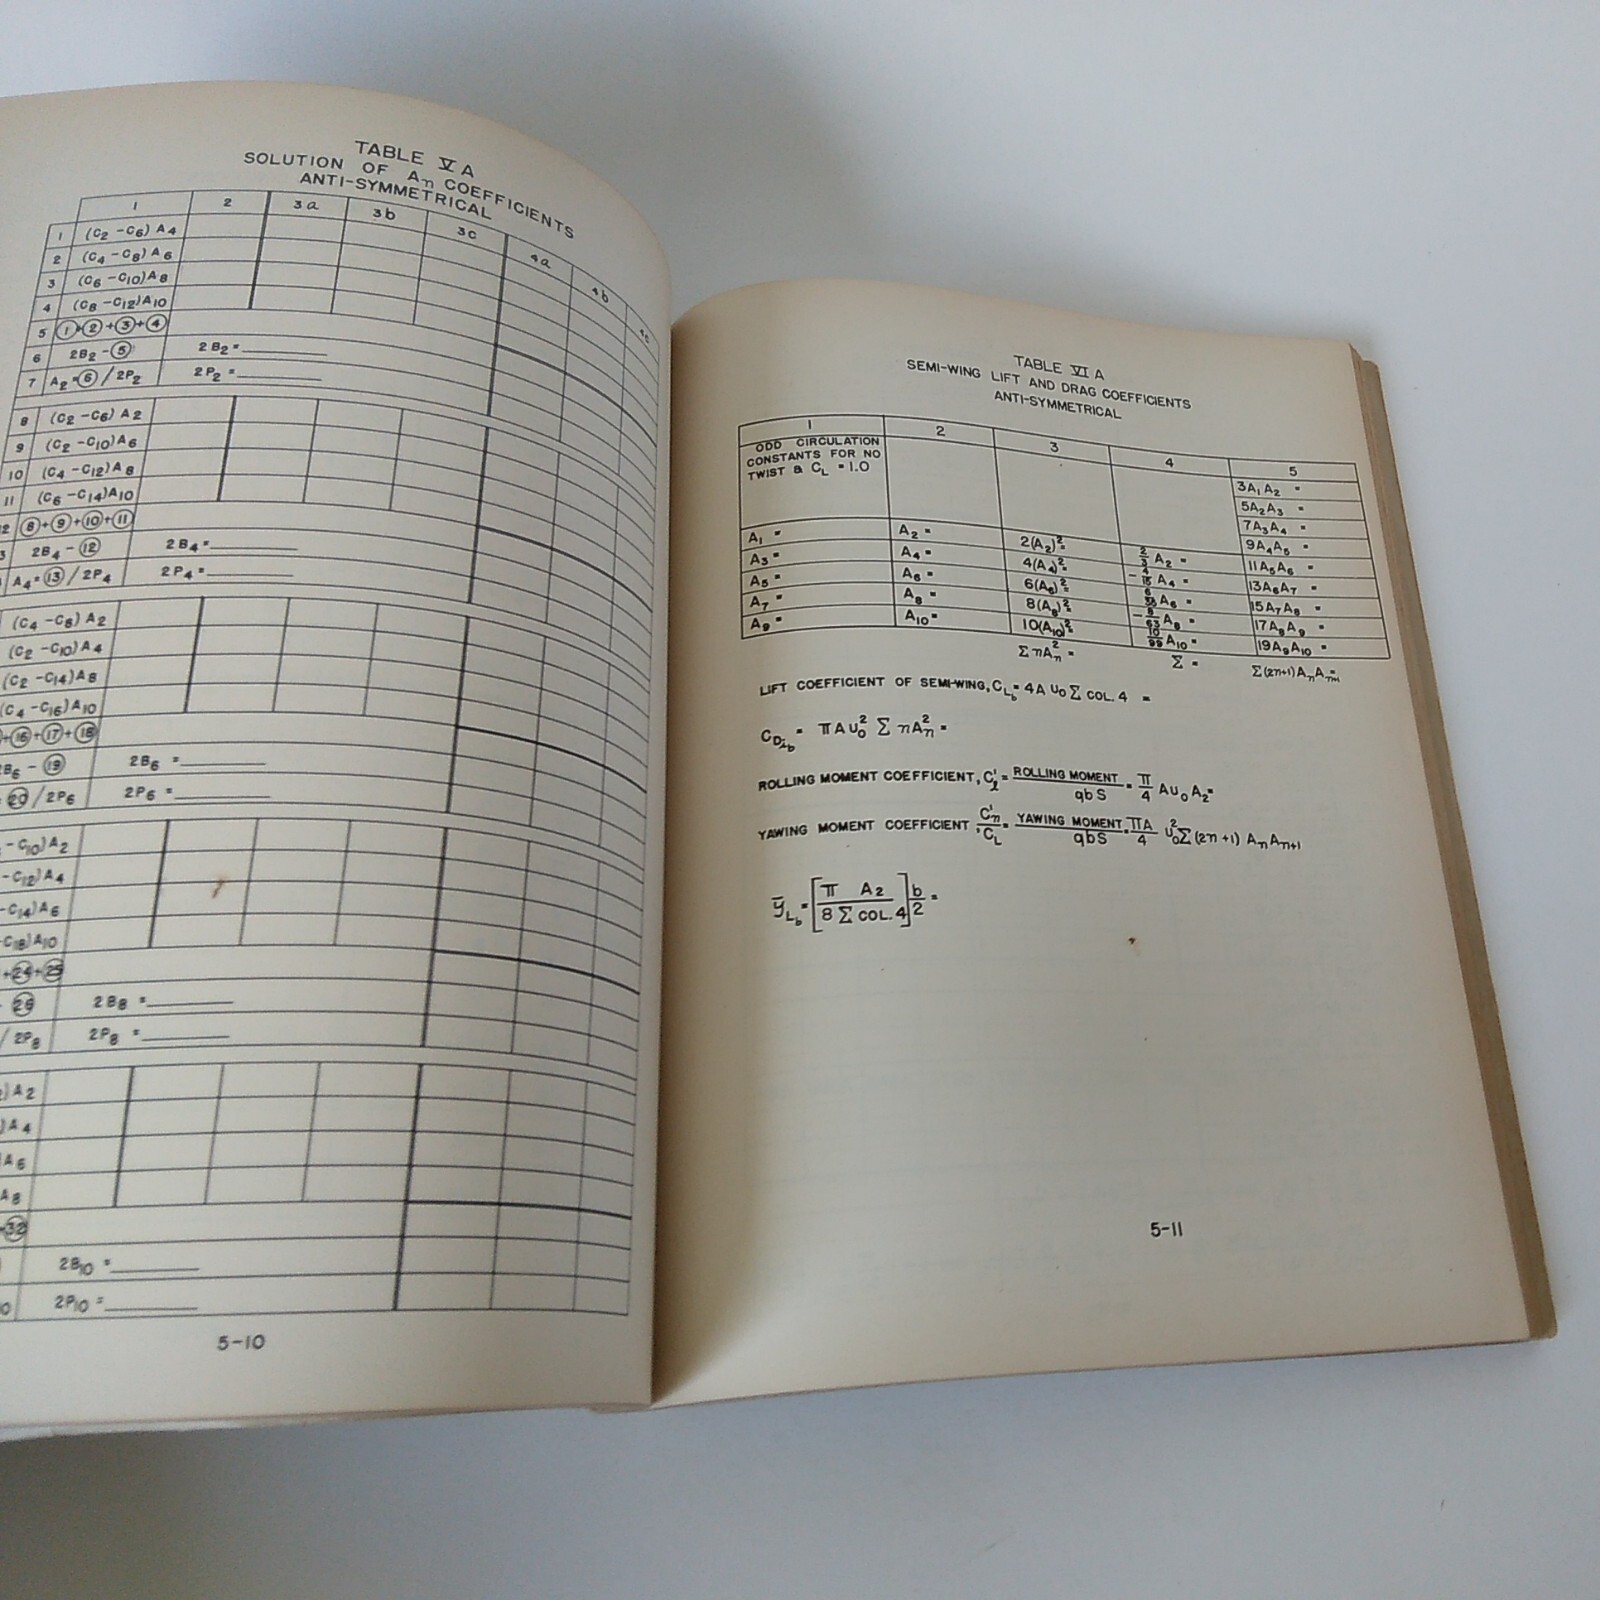 TABLE V A
SOLUTION OF An COEFFICIENTS
ANTI-SYMMETRICAL
1 2 3a 3b 3c 4a 4b 4c
1 (C2 -C6) A4
2 (C4 -C8) A6
3 (C6 -C10)A8
4 (C8 -C12)A10
5 ①+②+③+④
6 2B2 -⑤ 2B2 = ________
7 A2=⑥/2P2 2P2 = ________
8 (C2 -C6) A2
9 (C2 -C10)A6
10 (C4 -C12)A8
11 (C6 -C14)A10
12 ⑧+⑨+⑩+⑪
2B4 -⑫ 2B4= ________
A4=⑬/2P4 2P4= ________
(C4 -C8) A2
(C2 -C10)A4
(C2 -C14)A8
(C4 -C16)A10
+⑯+⑰+⑱
2B6 -⑲ 2B6 = ________
⑳/2P6 2P6 = ________
-C10)A2
-C12)A4
-C14)A6
-C18)A10
+㉔+㉕
- ㉖ 2B8 = ________
/2P8 2P8 = ________
)A2
)A4
)A6
A8
+㉜
2B10 = ________
2P10 = ________
5-10
TABLE VI A
SEMI-WING LIFT AND DRAG COEFFICIENTS
ANTI-SYMMETRICAL
1 2 3 4 5
ODD CIRCULATION
CONSTANTS FOR NO
TWIST & CL = 1.0
3A1A2 =
5A2A3 =
7A3A4 =
9A4A5 =
A1 = A2 = 2(A2)²= 2/3 A2 = 11A5A6 =
A3 = A4 = 4(A4)²= -4/15 A4 = 13A6A7 =
A5 = A6 = 6(A6)²= 6/35 A6 = 15A7A8 =
A7 = A8 = 8(A8)²= -8/63 A8 = 17A8A9 =
A9 = A10 = 10(A10)²= 10/99 A10 = 19A9A10 =
Σ nAn² = Σ = Σ(2n+1)AnAn+1
LIFT COEFFICIENT OF SEMI-WING, CLb = 4A U0 Σ COL. 4 =
CDib = π A U0² Σ nAn² =
ROLLING MOMENT COEFFICIENT, C'l = ROLLING MOMENT / qbS = π/4 AU0 A2=
YAWING MOMENT COEFFICIENT C'n/'CL = YAWING MOMENT / qbS = πA/4 U0² Σ(2n+1) AnAn+1
ȳLb = [π A2 / 8 Σ COL. 4] b/2 =
5-11